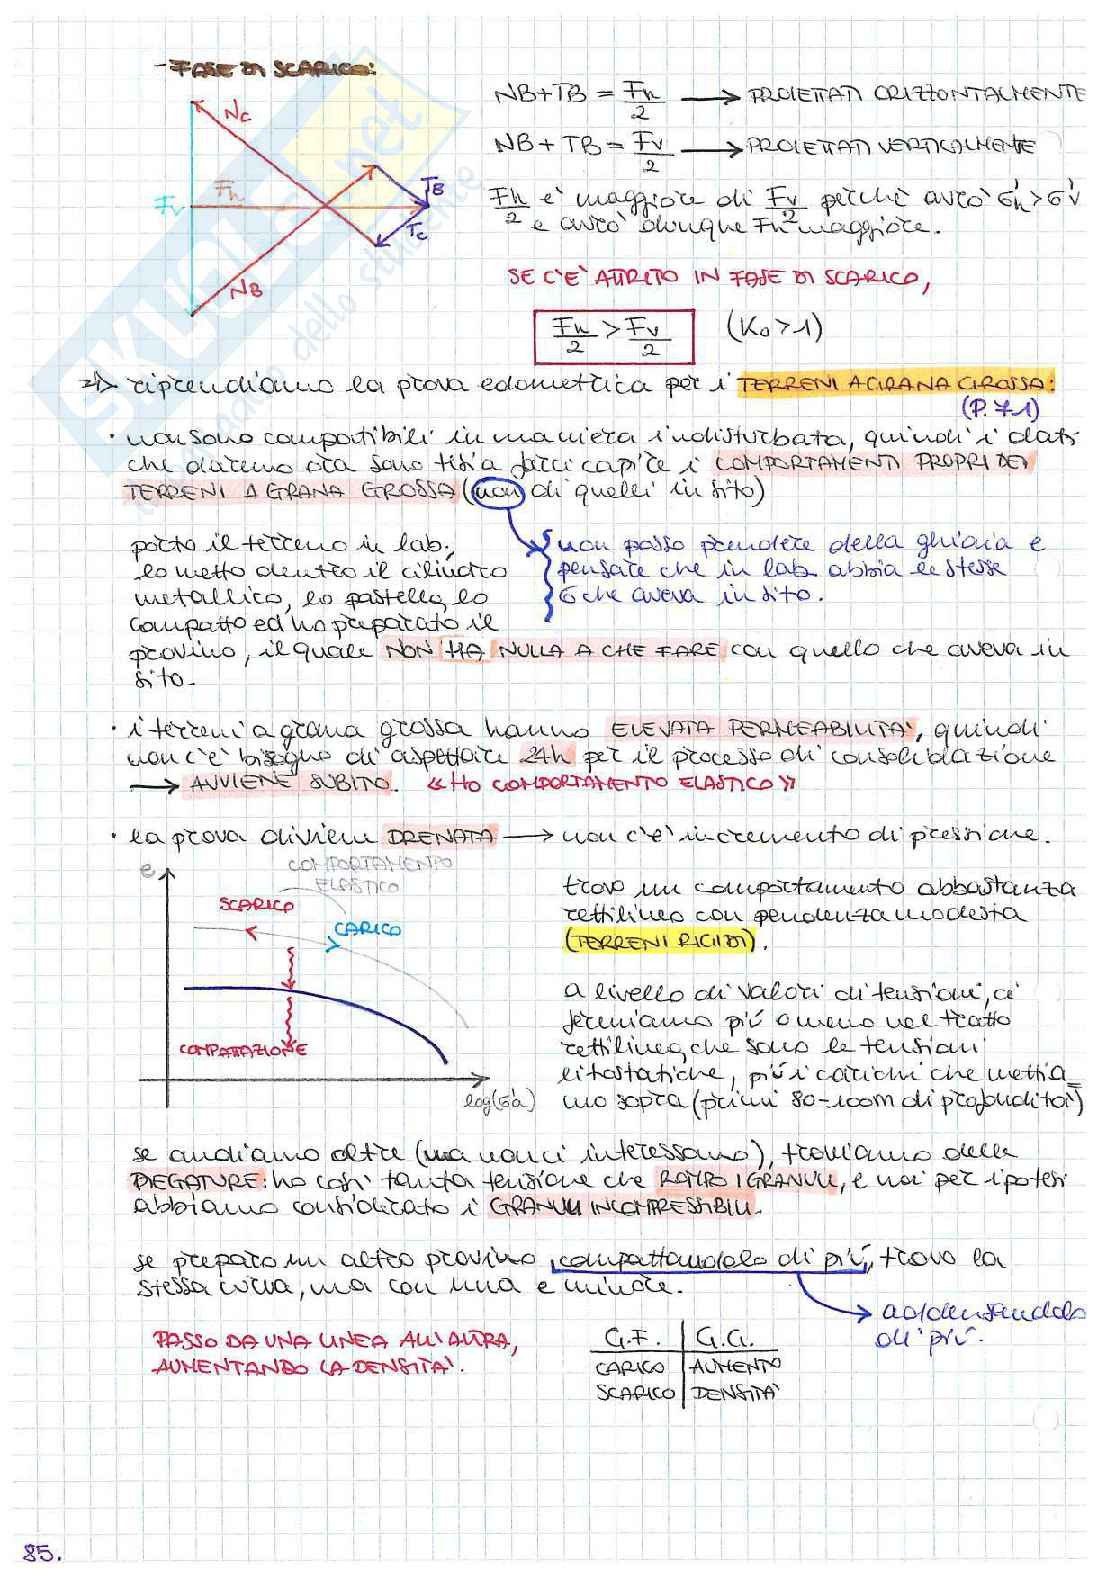 - FASE DI SCARICO:
Nc
Fv
Fh
TB
Tc
NB
NB+TB = Fh/2 → PROIETTATI ORIZZONTALMENTE
NB+TB = Fv/2 → PROIETTATI VERTICALMENTE
Fh/2 è maggiore di Fv/2 perché avrò σ'h > σ'v
e avrò dunque Fh maggiore.
SE C'È ATTRITO IN FASE DI SCARICO,
Fh/2 > Fv/2 (K₀>1)
⇒ riprendiamo la prova edometrica per i TERRENI A GRANA GROSSA:
(P.71)
· non sono compatibili in maniera indisturbata, quindi i dati
che daremo ora sono tesi a farci capire i COMPORTAMENTI PROPRI DEI
TERRENI A GRANA GROSSA (non di quelli in sito)
porto il terreno in lab.,
lo metto dentro il cilindro
metallico, lo pastello, lo
compatto ed ho preparato il
provino, il quale NON HA NULLA A CHE FARE con quello che aveva in
sito.
non posso prendere della ghiaia e
pensare che in lab. abbia le stesse
σ che aveva in sito.
· i terreni a grana grossa hanno ELEVATA PERMEABILITÀ, quindi
non c'è bisogno di aspettare 24h per il processo di consolidazione
→ AVVIENE SUBITO. «HO COMPORTAMENTO ELASTICO»
· la prova diviene DRENATA → non c'è incremento di pressione.
e
COMPORTAMENTO
ELASTICO
SCARICO
CARICO
COMPATTAZIONE
log(σ'a)
trovo un comportamento abbastanza
rettilineo con pendenza modesta
(TERRENI RIGIDI).
a livello di valori di tensioni, ci
fermiamo più o meno nel tratto
rettilineo, che sono le tensioni
litostatiche, più i carichi che mettia=
mo sopra (primi 80-100m di profondità)
se andiamo oltre (ma non ci interessano), troviamo delle
PIEGATURE: ho così tanta tensione che ROMPO I GRANULI, e noi per ipotesi
abbiamo considerato i GRANULI INCOMPRESSIBILI.
se preparo un altro provino, compattandolo di più, trovo la
stessa curva, ma con una e minore.
addensandolo
di più.
PASSO DA UNA LINEA ALL'ALTRA,
AUMENTANDO LA DENSITÀ.
G.F. | G.G.
CARICO | AUMENTO
SCARICO | DENSITÀ
85.
SKUOLA.net